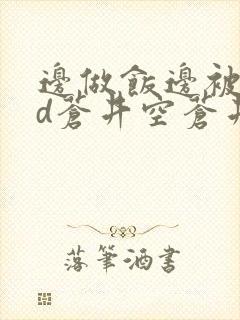 邊做飯邊被
d蒼井空蒼井
落筆酒書